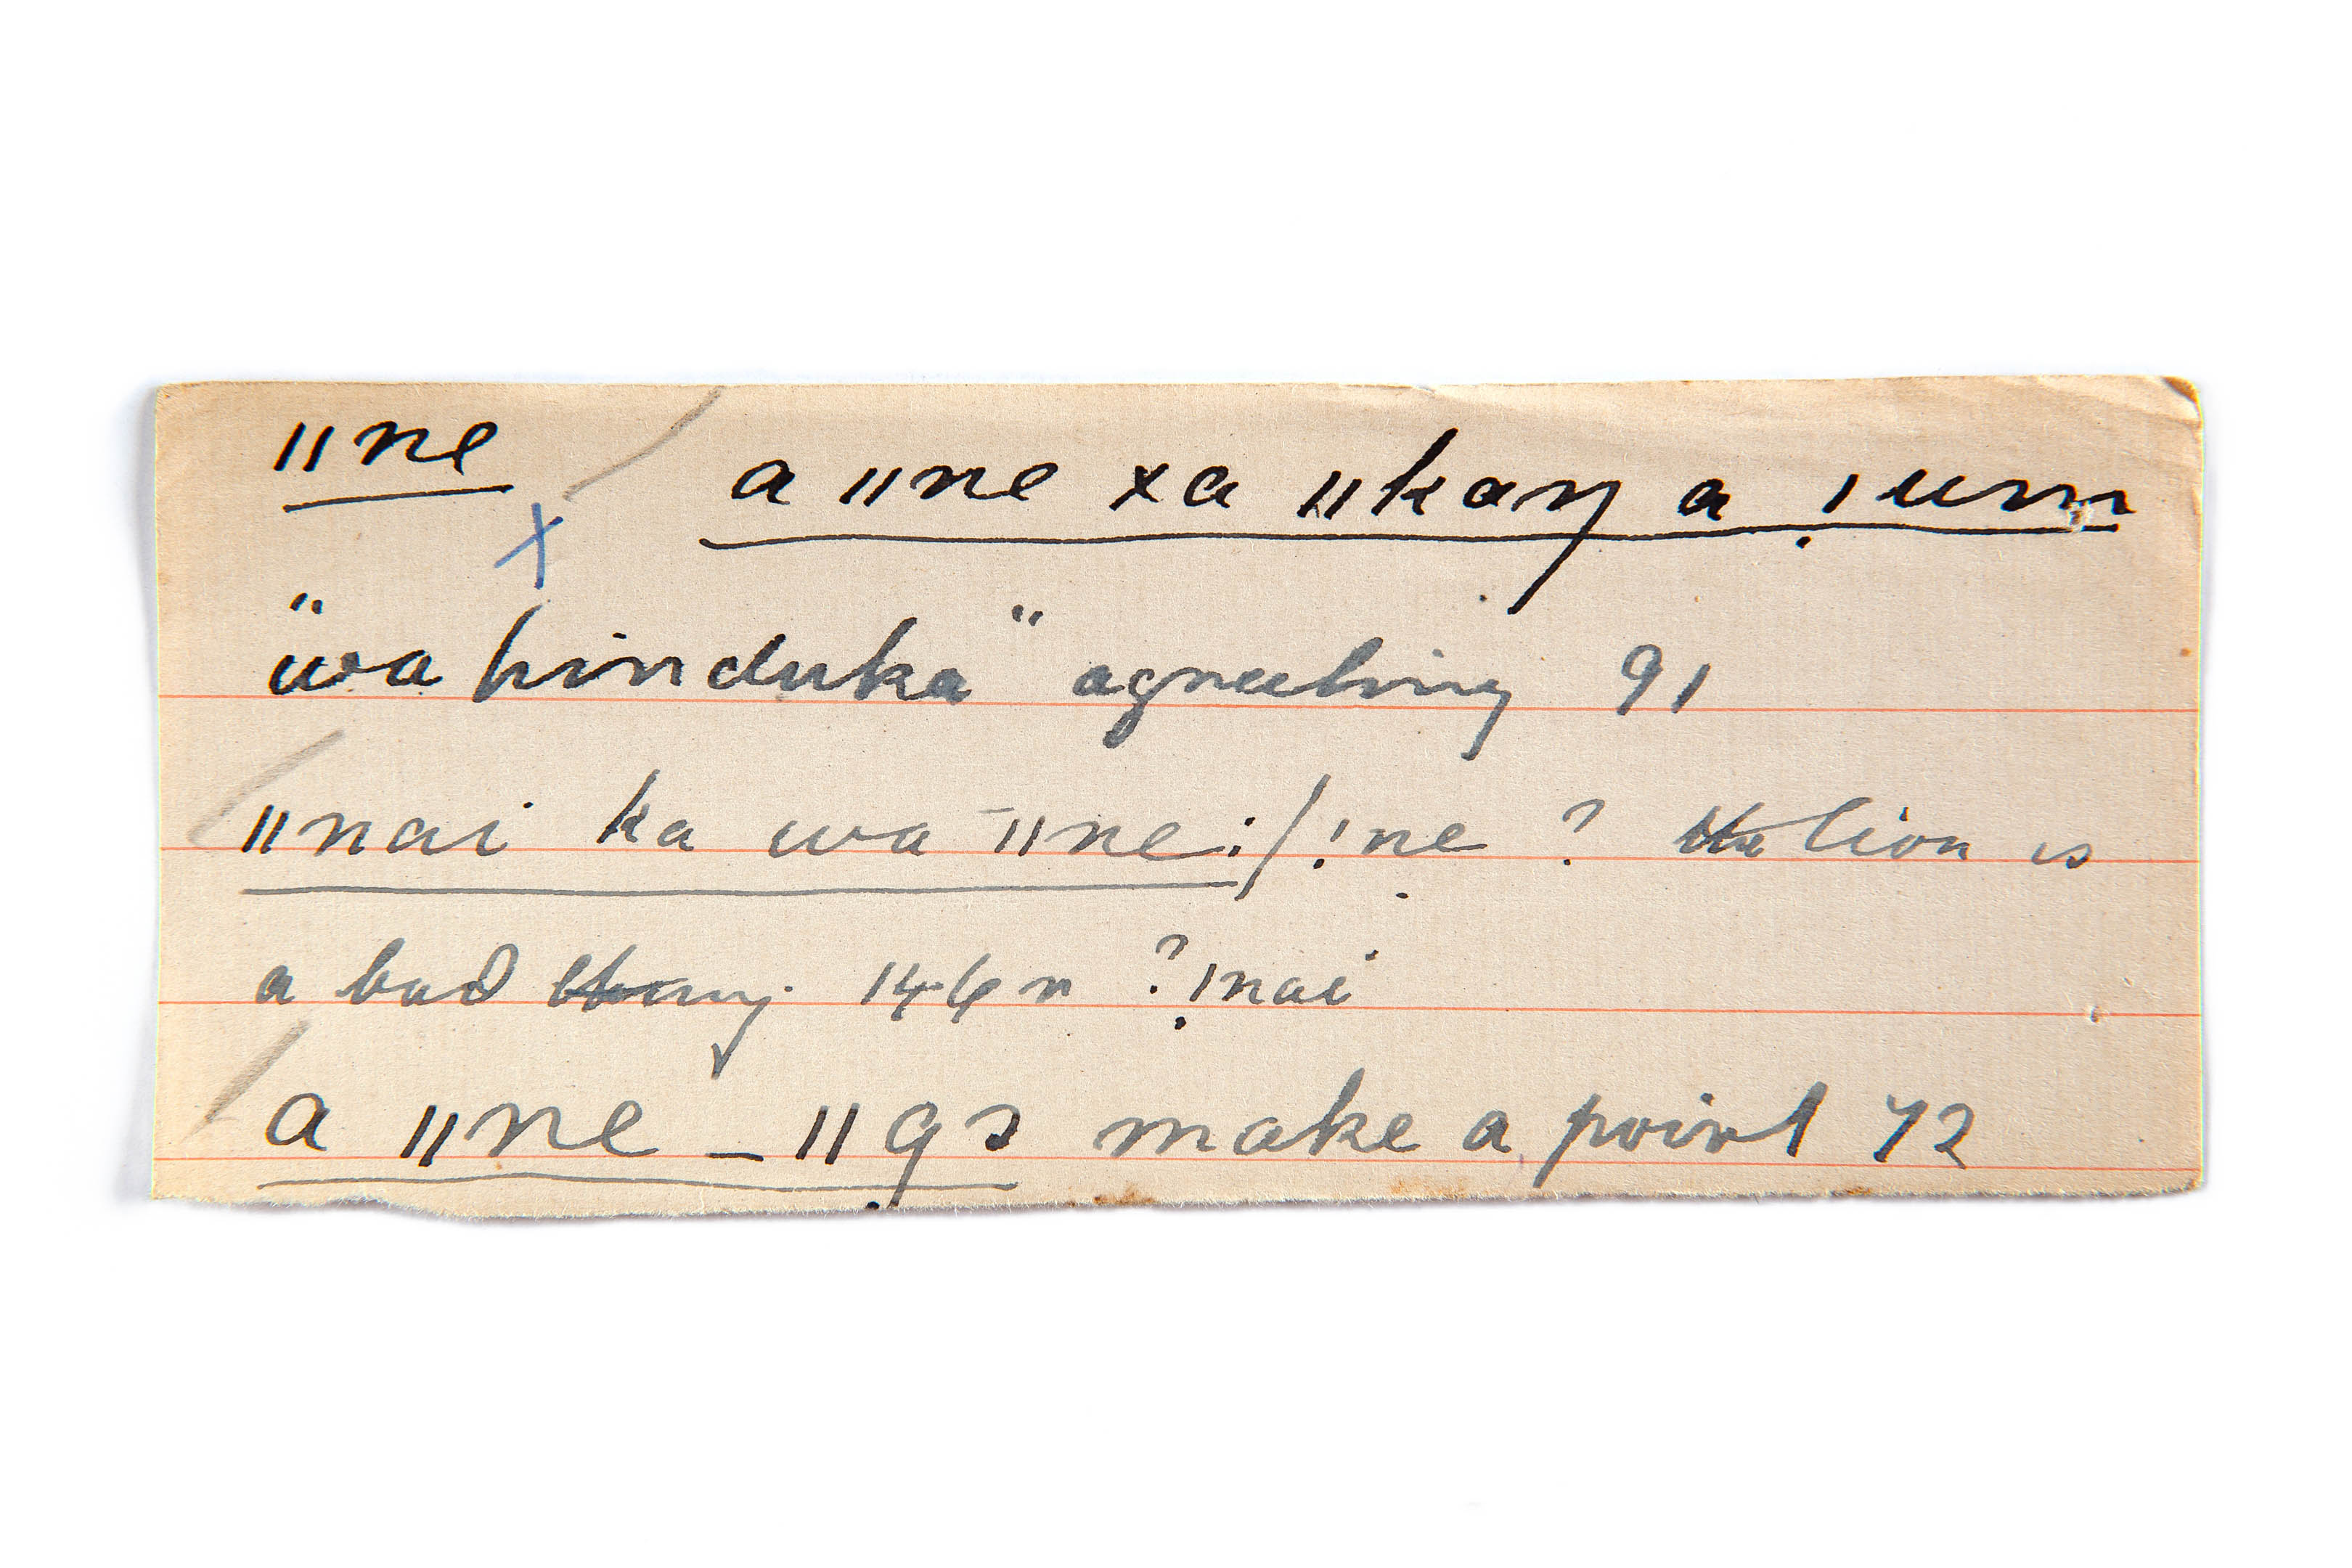 ǁne a ǁne xa ǁkaŋ a ǃum
"wa hinduka" agreeting 91
ǁnai ka wa ǁne:/ǃne ? the lion is
a bad thing. 146 n ?ǃnai
a ǁne _ ǁgɔ make a point 72